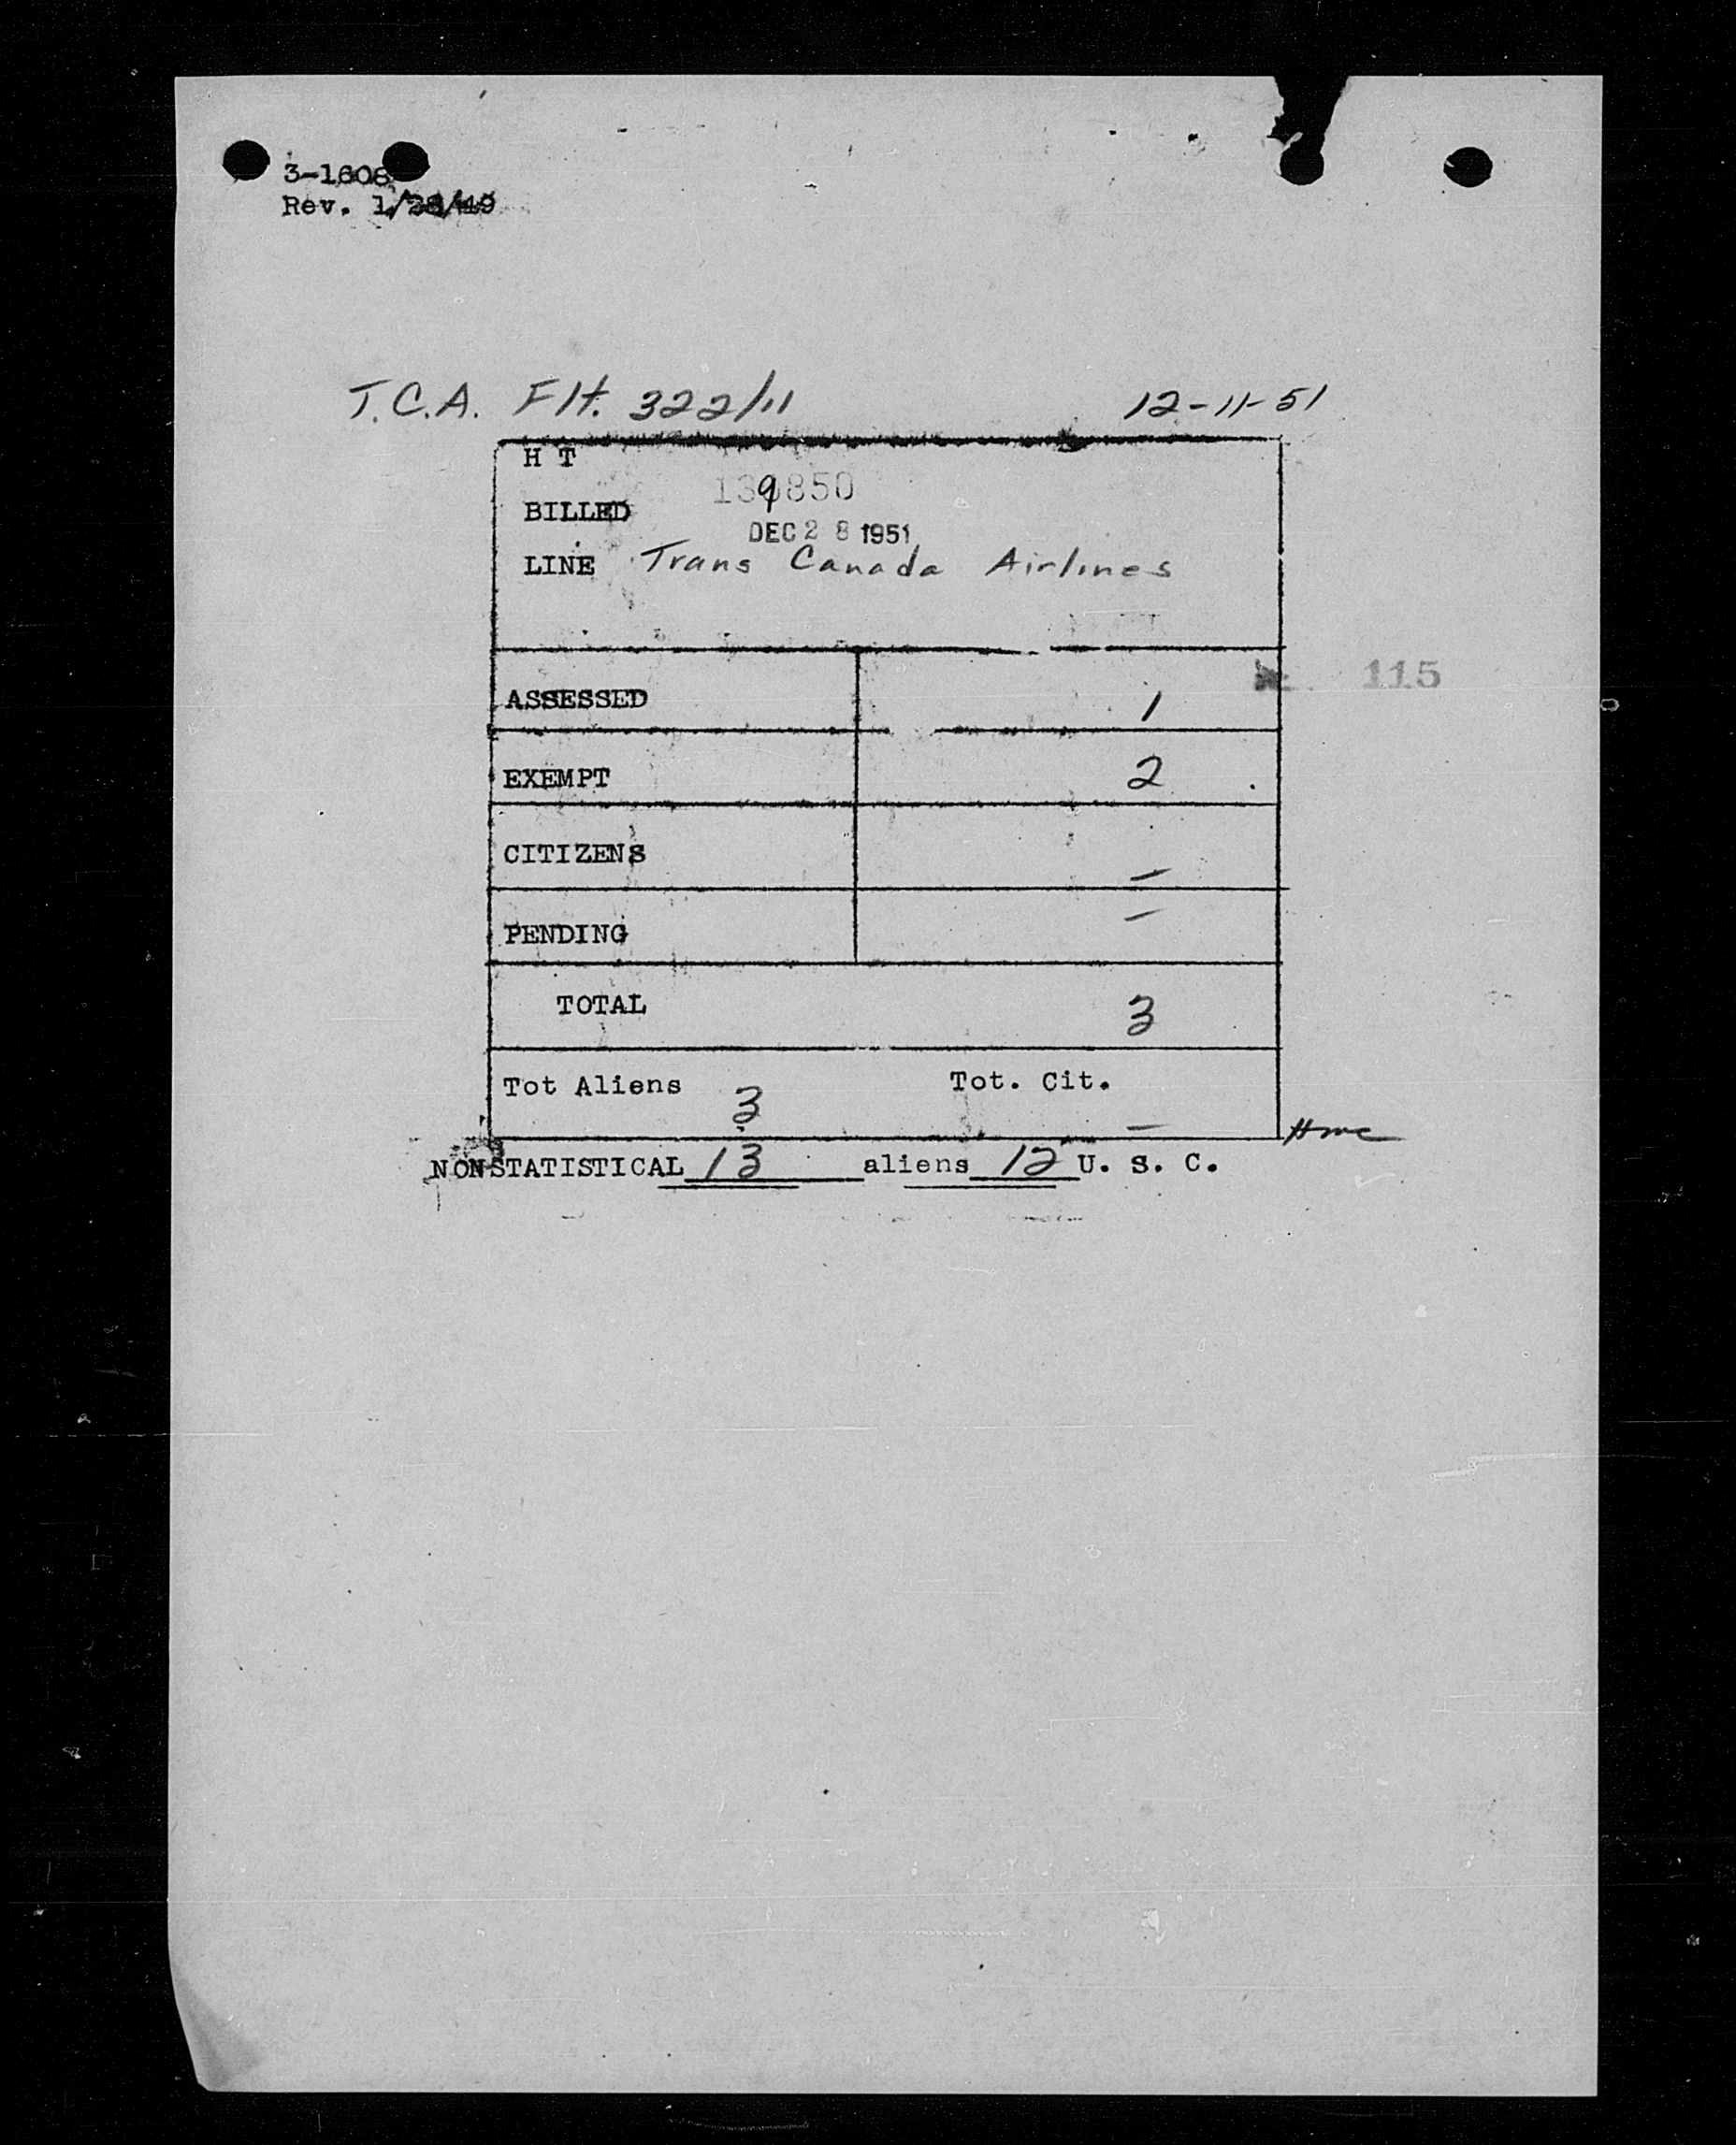 3-1608
Rev. 1/28/49
T.C.A. Flt. 322/11 12-11-51
H T
139850
BILLED
DEC 28 1951
LINE Trans Canada Airlines
115
ASSESSED 1
EXEMPT 2
CITIZENS —
PENDING —
TOTAL 3
Tot Aliens 3 Tot. Cit. —
NONSTATISTICAL 13 aliens 12 U. S. C.